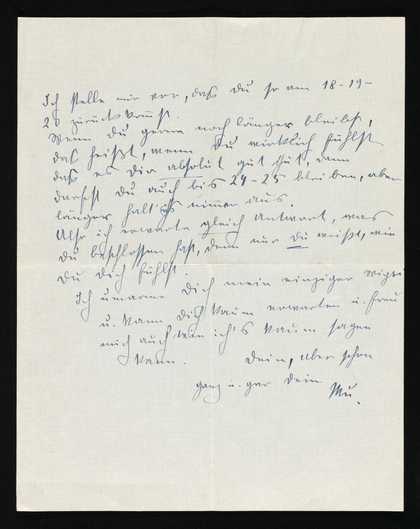 Ich stelle mir vor, daß du so am 18-19-
20 zurück kommst.
Wenn du gerne noch länger bleibst,
das heißt, wenn du wirklich fühlst
daß es dir absolut gut tut, dann
darfst du auch bis 24-25 bleiben, aber
länger halt ich's nimmer aus.
Also ich erwarte gleich Antwort, was
du beschlossen hast, denn nur du weißt, wie
du dich fühlst.
Ich umarme dich mein einziger
u. kann dich kaum erwarten u. freu
mich auch wie ich's kaum sagen
kann. Dein, aber schon
ganz u. gar dein
Mu.